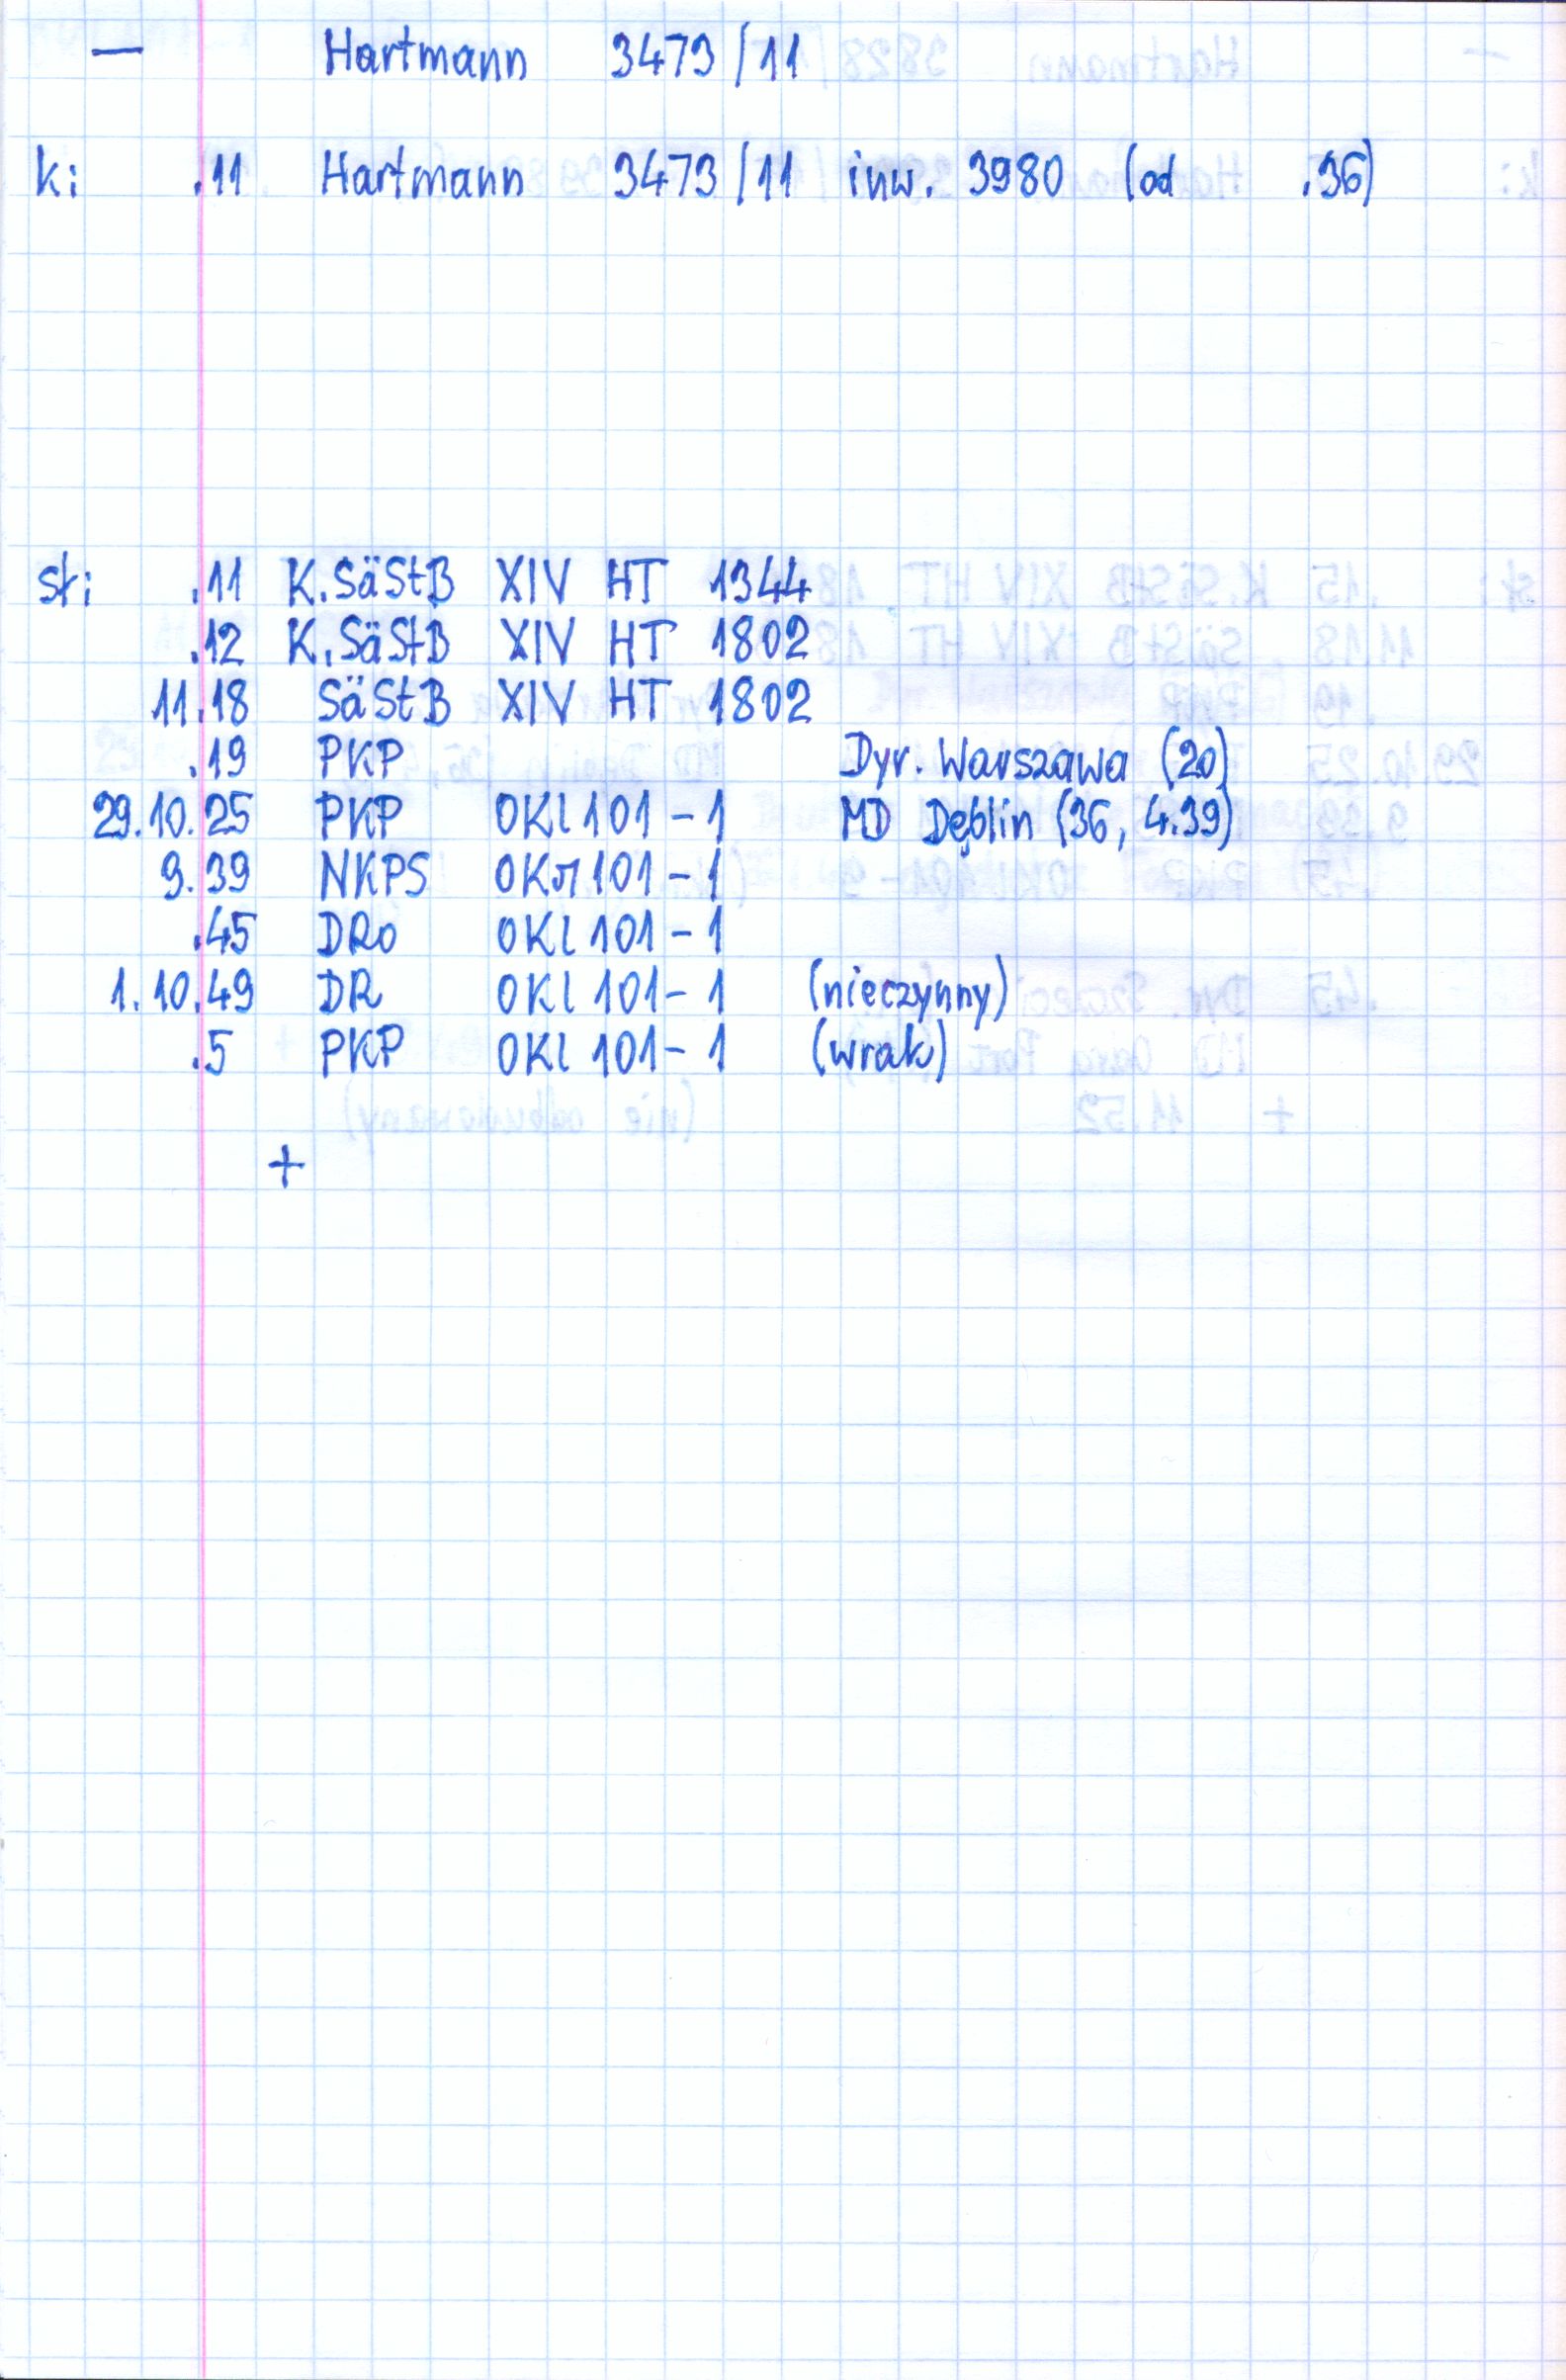 — Hartmann 3473/11
k: .11 Hartmann 3473/11 inw. 3980 (od .36)
st: .11 K.SäStB XIV HT 1344
.12 K.SäStB XIV HT 1802
11.18 SäStB XIV HT 1802
.19 PKP Dyr. Warszawa (20)
29.10.25 PKP OKl 101-1 MD Dęblin (36, 4.39)
9.39 NKPS ОКл 101-1
.45 DRo OKl 101-1
1.10.49 DR OKl 101-1 (nieczynny)
.5 PKP OKl 101-1 (wrak)
+